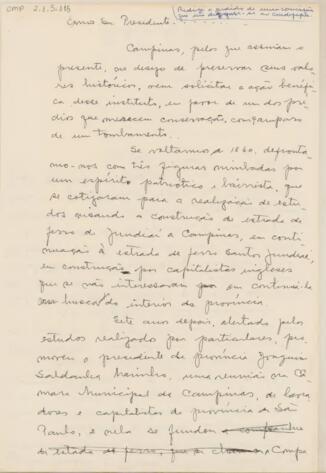 CMP 2.1.5.115
Exmo Sr. Presidente
Campinas, pelos que assinam o
presente, no desejo de preservar seus valo-
res históricos, vem solicitar a ação benéfi-
ca desse instituto, em favor de um dos pré-
dios que merecem conservação, com amparo
de um tombamento.
Se voltarmos a 1860, defronta-
mo-nos com três figuras nimbadas por
um espírito patriótico e bairrista, que
se cotizaram para a realização de estu-
dos visando a construção de estrada de
ferro de Jundiaí a Campinas, em conti-
nuação à estrada de ferro Santos Jundiaí,
em construção por capitalistas ingleses
que se não interessavam por em continuá-la
em busca do interior da província.
Sete anos depois, alertado pelos
estudos realizado por particulares, pro-
moveu o presidente da província Joaquim
Saldanha Marinho, uma reunião na Câ-
mara Municipal de Campinas, de lavra-
dores e capitalistas da província de São
Paulo, e nela se fundou a companhia
de estrada de ferro, que se chamou a Comp